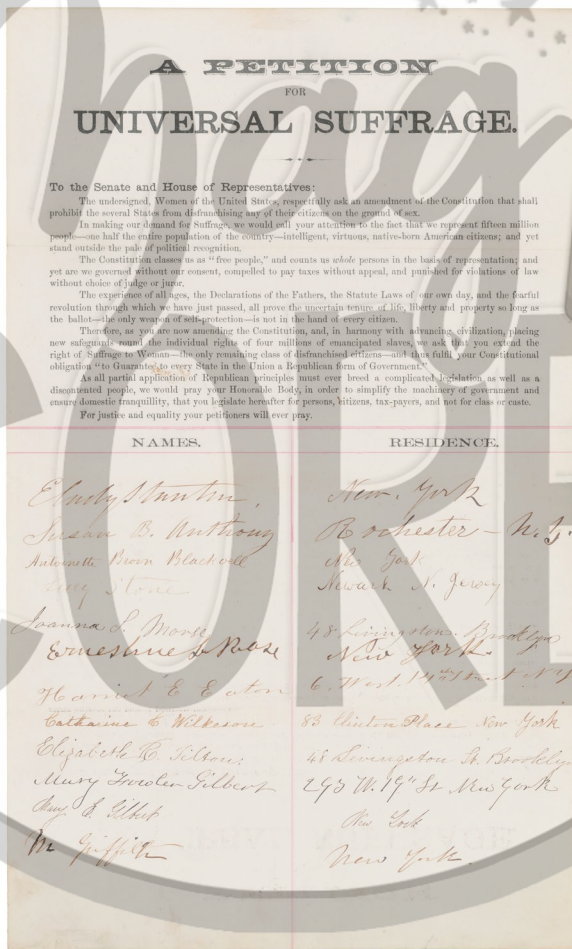 A PETITION
FOR
UNIVERSAL SUFFRAGE.
To the Senate and House of Representatives:
The undersigned, Women of the United States, respectfully ask an amendment of the Constitution that shall
prohibit the several States from disfranchising any of their citizens on the ground of sex.
In making our demand for Suffrage, we would call your attention to the fact that we represent fifteen million
people—one half the entire population of the country—intelligent, virtuous, native-born American citizens; and yet
stand outside the pale of political recognition.
The Constitution classes us as "free people," and counts us whole persons in the basis of representation; and
yet are we governed without our consent, compelled to pay taxes without appeal, and punished for violations of law
without choice of judge or juror.
The experience of all ages, the Declarations of the Fathers, the Statute Laws of our own day, and the fearful
revolution through which we have just passed, all prove the uncertain tenure of life, liberty and property so long as
the ballot—the only weapon of self-protection—is not in the hand of every citizen.
Therefore, as you are now amending the Constitution, and, in harmony with advancing civilization, placing
new safeguards round the individual rights of four millions of emancipated slaves, we ask that you extend the
right of Suffrage to Woman—the only remaining class of disfranchised citizens—and thus fulfil your Constitutional
obligation "to Guarantee to every State in the Union a Republican form of Government."
As all partial application of Republican principles must ever breed a complicated legislation as well as a
discontented people, we would pray your Honorable Body, in order to simplify the machinery of government and
ensure domestic tranquillity, that you legislate hereafter for persons, citizens, tax-payers, and not for class or caste.
For justice and equality your petitioners will ever pray.
NAMES. RESIDENCE.
E Cady Stanton, New York
Susan B. Anthony Rochester - N.Y.
Antoinette Brown Blackwell New York
Lucy Stone Newark N. Jersey
Joanna S. Morse 48 Livingston. Brooklyn
Ernestine L Rose New York
Harriet E Eaton 6. West. 14th Street N.Y
Catharine C Wilkeson 83 Clinton Place New York
Elizabeth R. Tilton: 48 Livingston St. Brooklyn
Mary Fowler Gilbert 293 W. 19" St New York
Mary E. Gilbert New York
M Griffith New York.
Chag
CORE